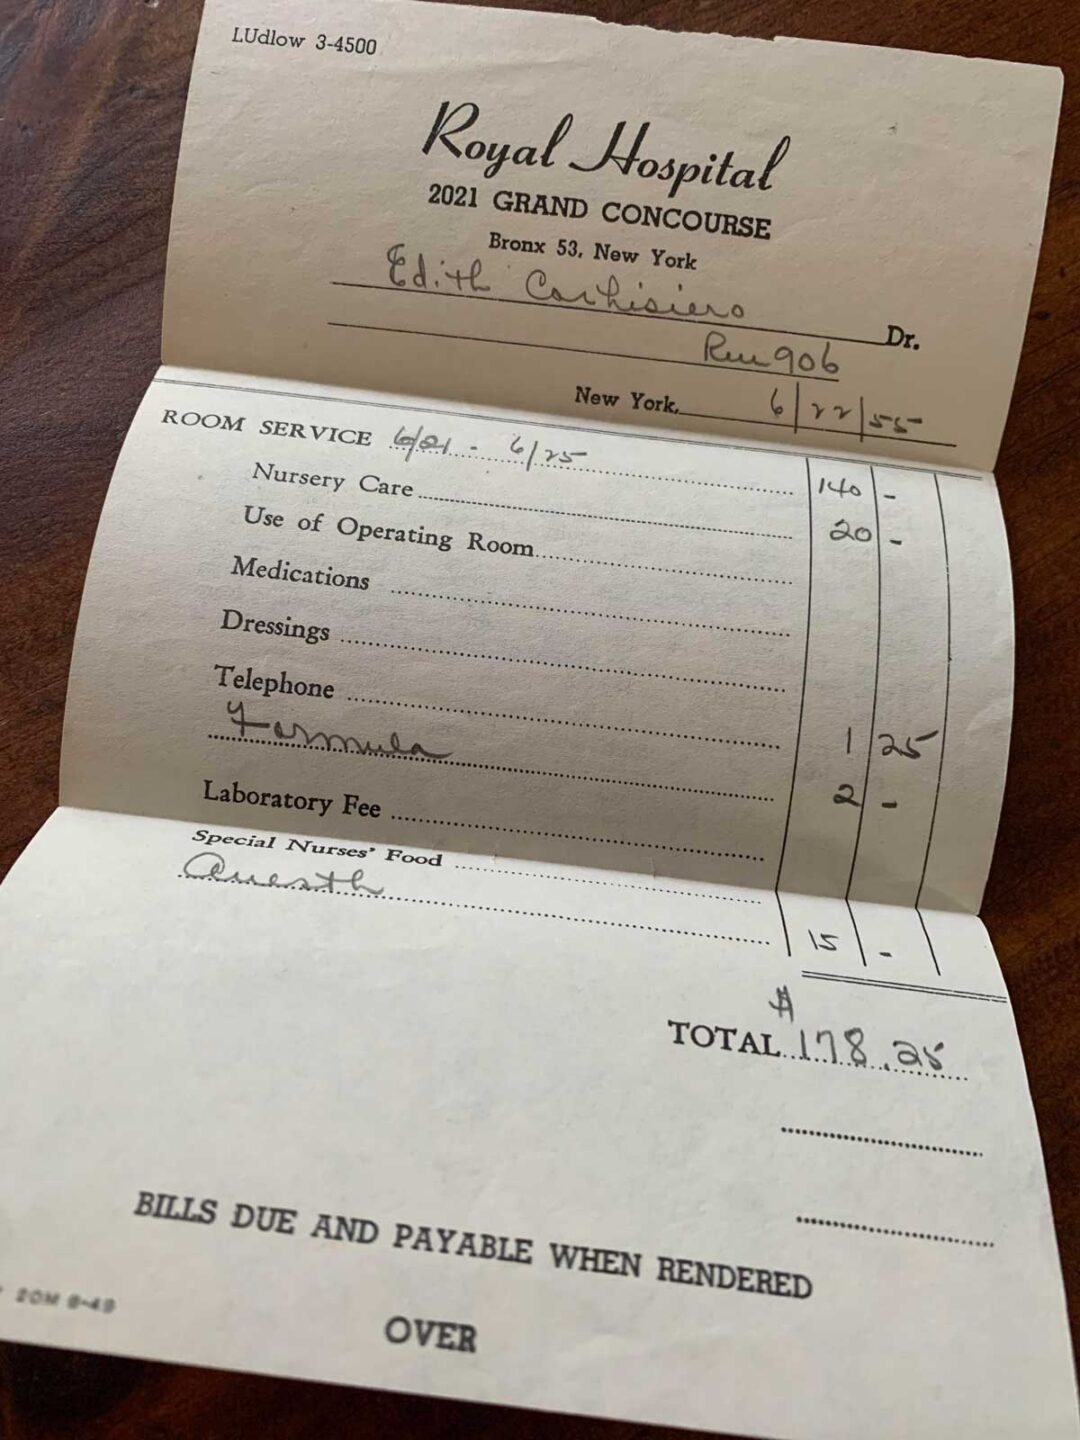 LUdlow 3-4500
Royal Hospital
2021 GRAND CONCOURSE
Bronx 53, New York
Edith
Dr.
Rm 906
New York, 6/22/55
ROOM SERVICE 6/21 - 6/25 140 -
Nursery Care 20 -
Use of Operating Room
Medications
Dressings
Telephone 1 25
Formula 2 -
Laboratory Fee
Special Nurses' Food
Anesth 15 -
$
TOTAL 178.25
BILLS DUE AND PAYABLE WHEN RENDERED
20M 8-49
OVER